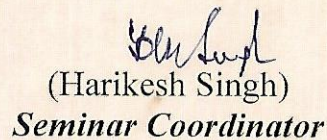 (Harikesh Singh)
Seminar Coordinator